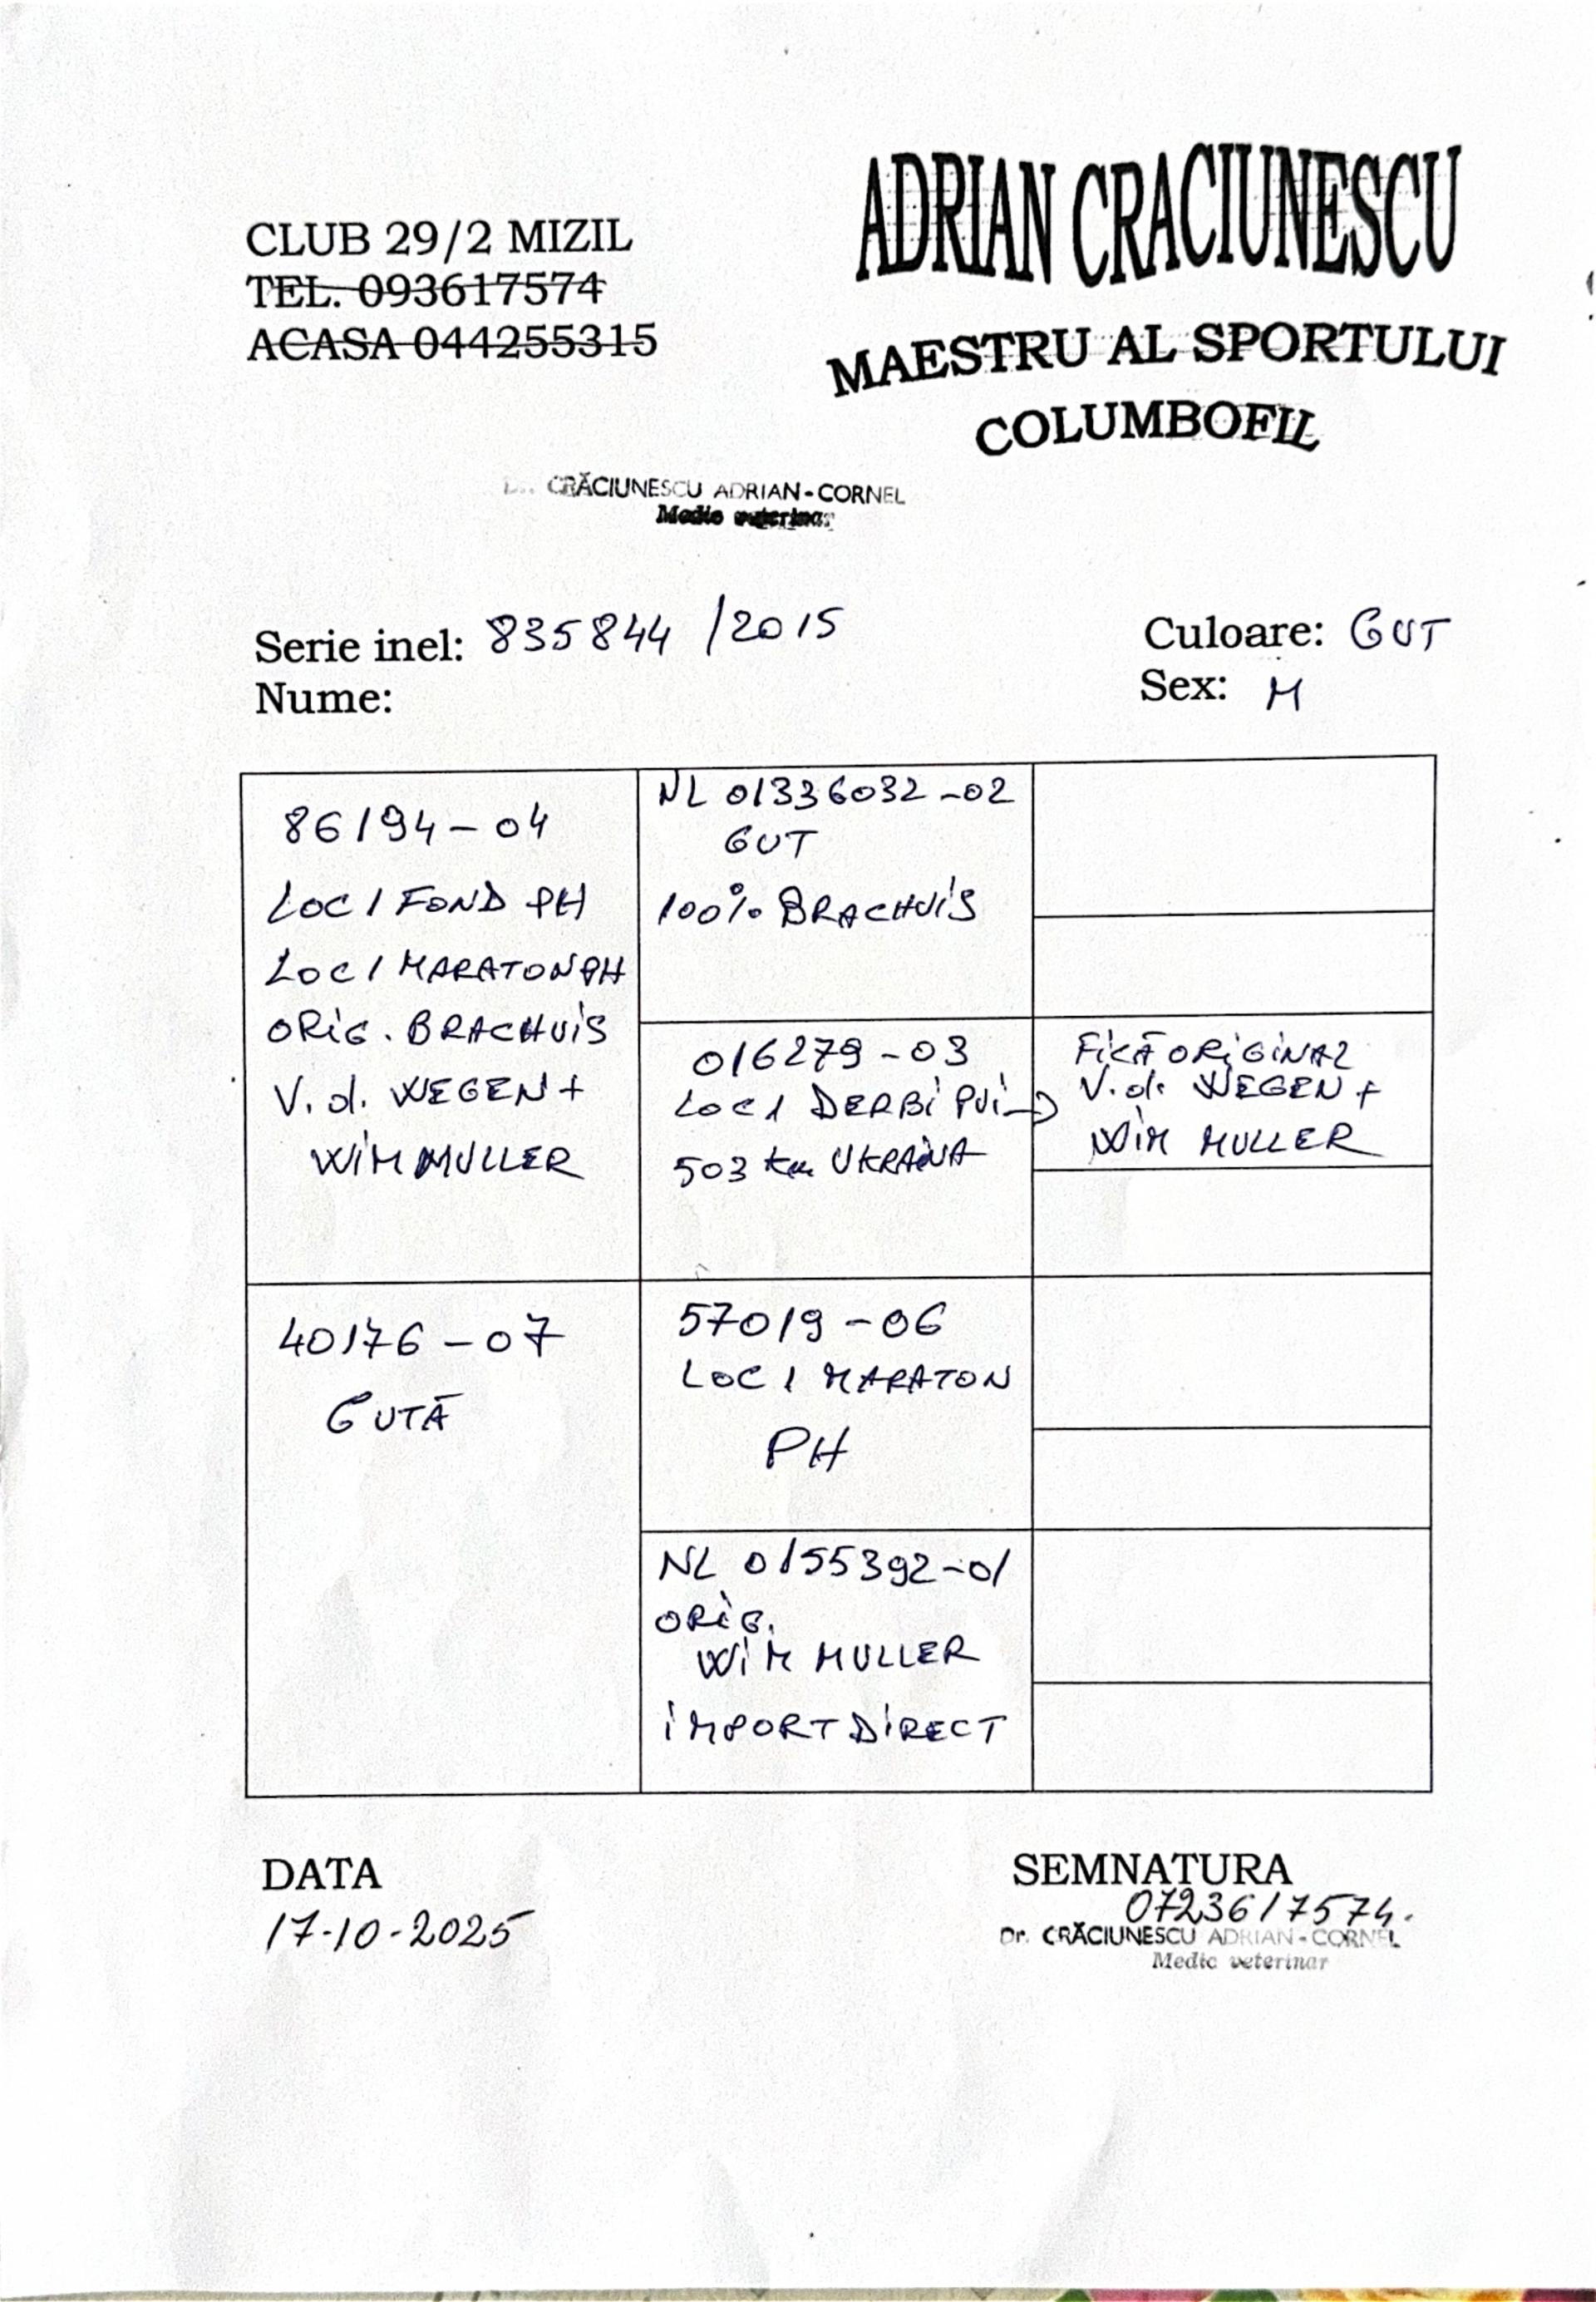 CLUB 29/2 MIZIL
TEL. 093617574
ACASA 044255315
ADRIAN CRACIUNESCU
MAESTRU AL SPORTULUI
COLUMBOFIL
CRĂCIUNESCU ADRIAN-CORNEL
Medic veterinar
Serie inel: 835844 /2015
Nume:
Culoare: GUT
Sex: M
86194-04
LOC 1 FOND PH
LOC 1 MARATON PH
ORIG. BRACHUIS
V.d. WEGEN +
WIM MULLER
NL 01336032-02
GUT
100% BRACHUIS
016279-03
LOC 1 DERBI PUI →
503 km UKRAINA
FIICĂ ORIGINAL
V.d. WEGEN +
WIM MULLER
40176-07
GUTĂ
57019-06
LOC 1 MARATON
PH
NL 0155392-01
ORIG.
WIM MULLER
IMPORT DIRECT
DATA
17-10-2025
SEMNATURA
0723617574.
Dr. CRĂCIUNESCU ADRIAN-CORNEL
Medic veterinar